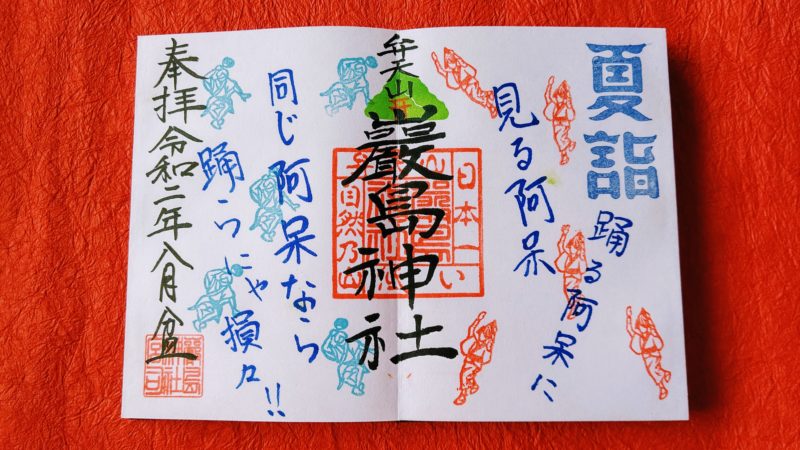 夏詣
踊る阿呆に
見る阿呆
弁天山
嚴島神社
日本一
自然乃山
同じ阿呆なら
踊らにゃ損々!!
奉拝令和二年八月盆